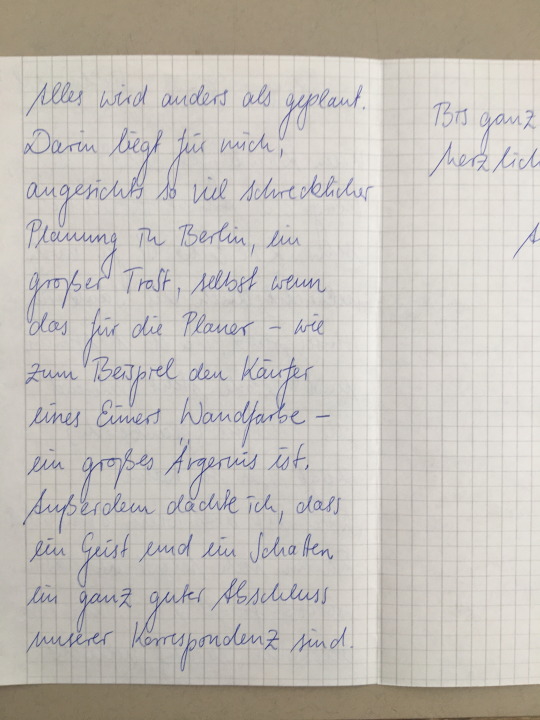 Alles wird anders als geplant.
Darin liegt für mich,
angesichts so viel schrecklicher
Planung in Berlin, ein
großer Trost, selbst wenn
das für die Planer – wie
zum Beispiel den Käufer
eines Eimers Wandfarbe –
ein großes Ärgernis ist.
Außerdem dachte ich, dass
ein Geist und ein Schatten
ein ganz guter Abschluss
unserer Korrespondenz sind.
Bis ganz
herzlich